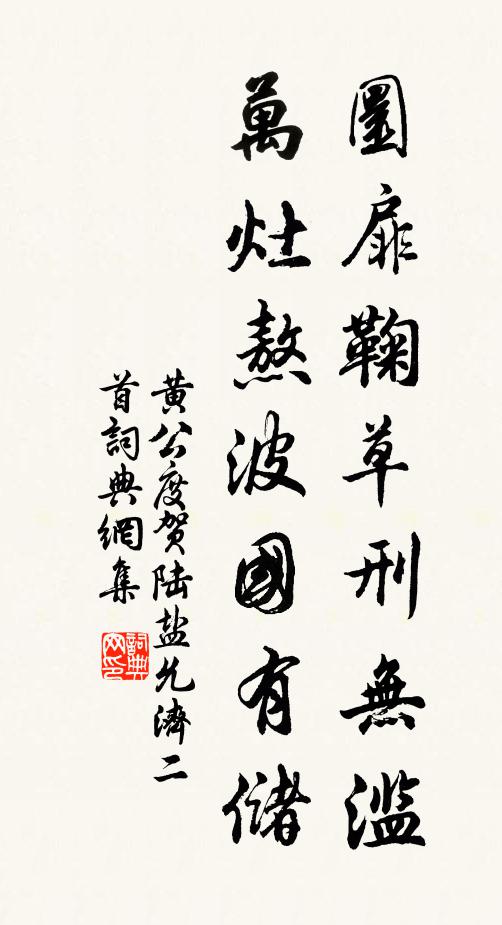 圜扉鞠草刑無濫
萬灶熬波國有儲
黄公度贺陆盐允濟二
首詞典網集
詞典网印